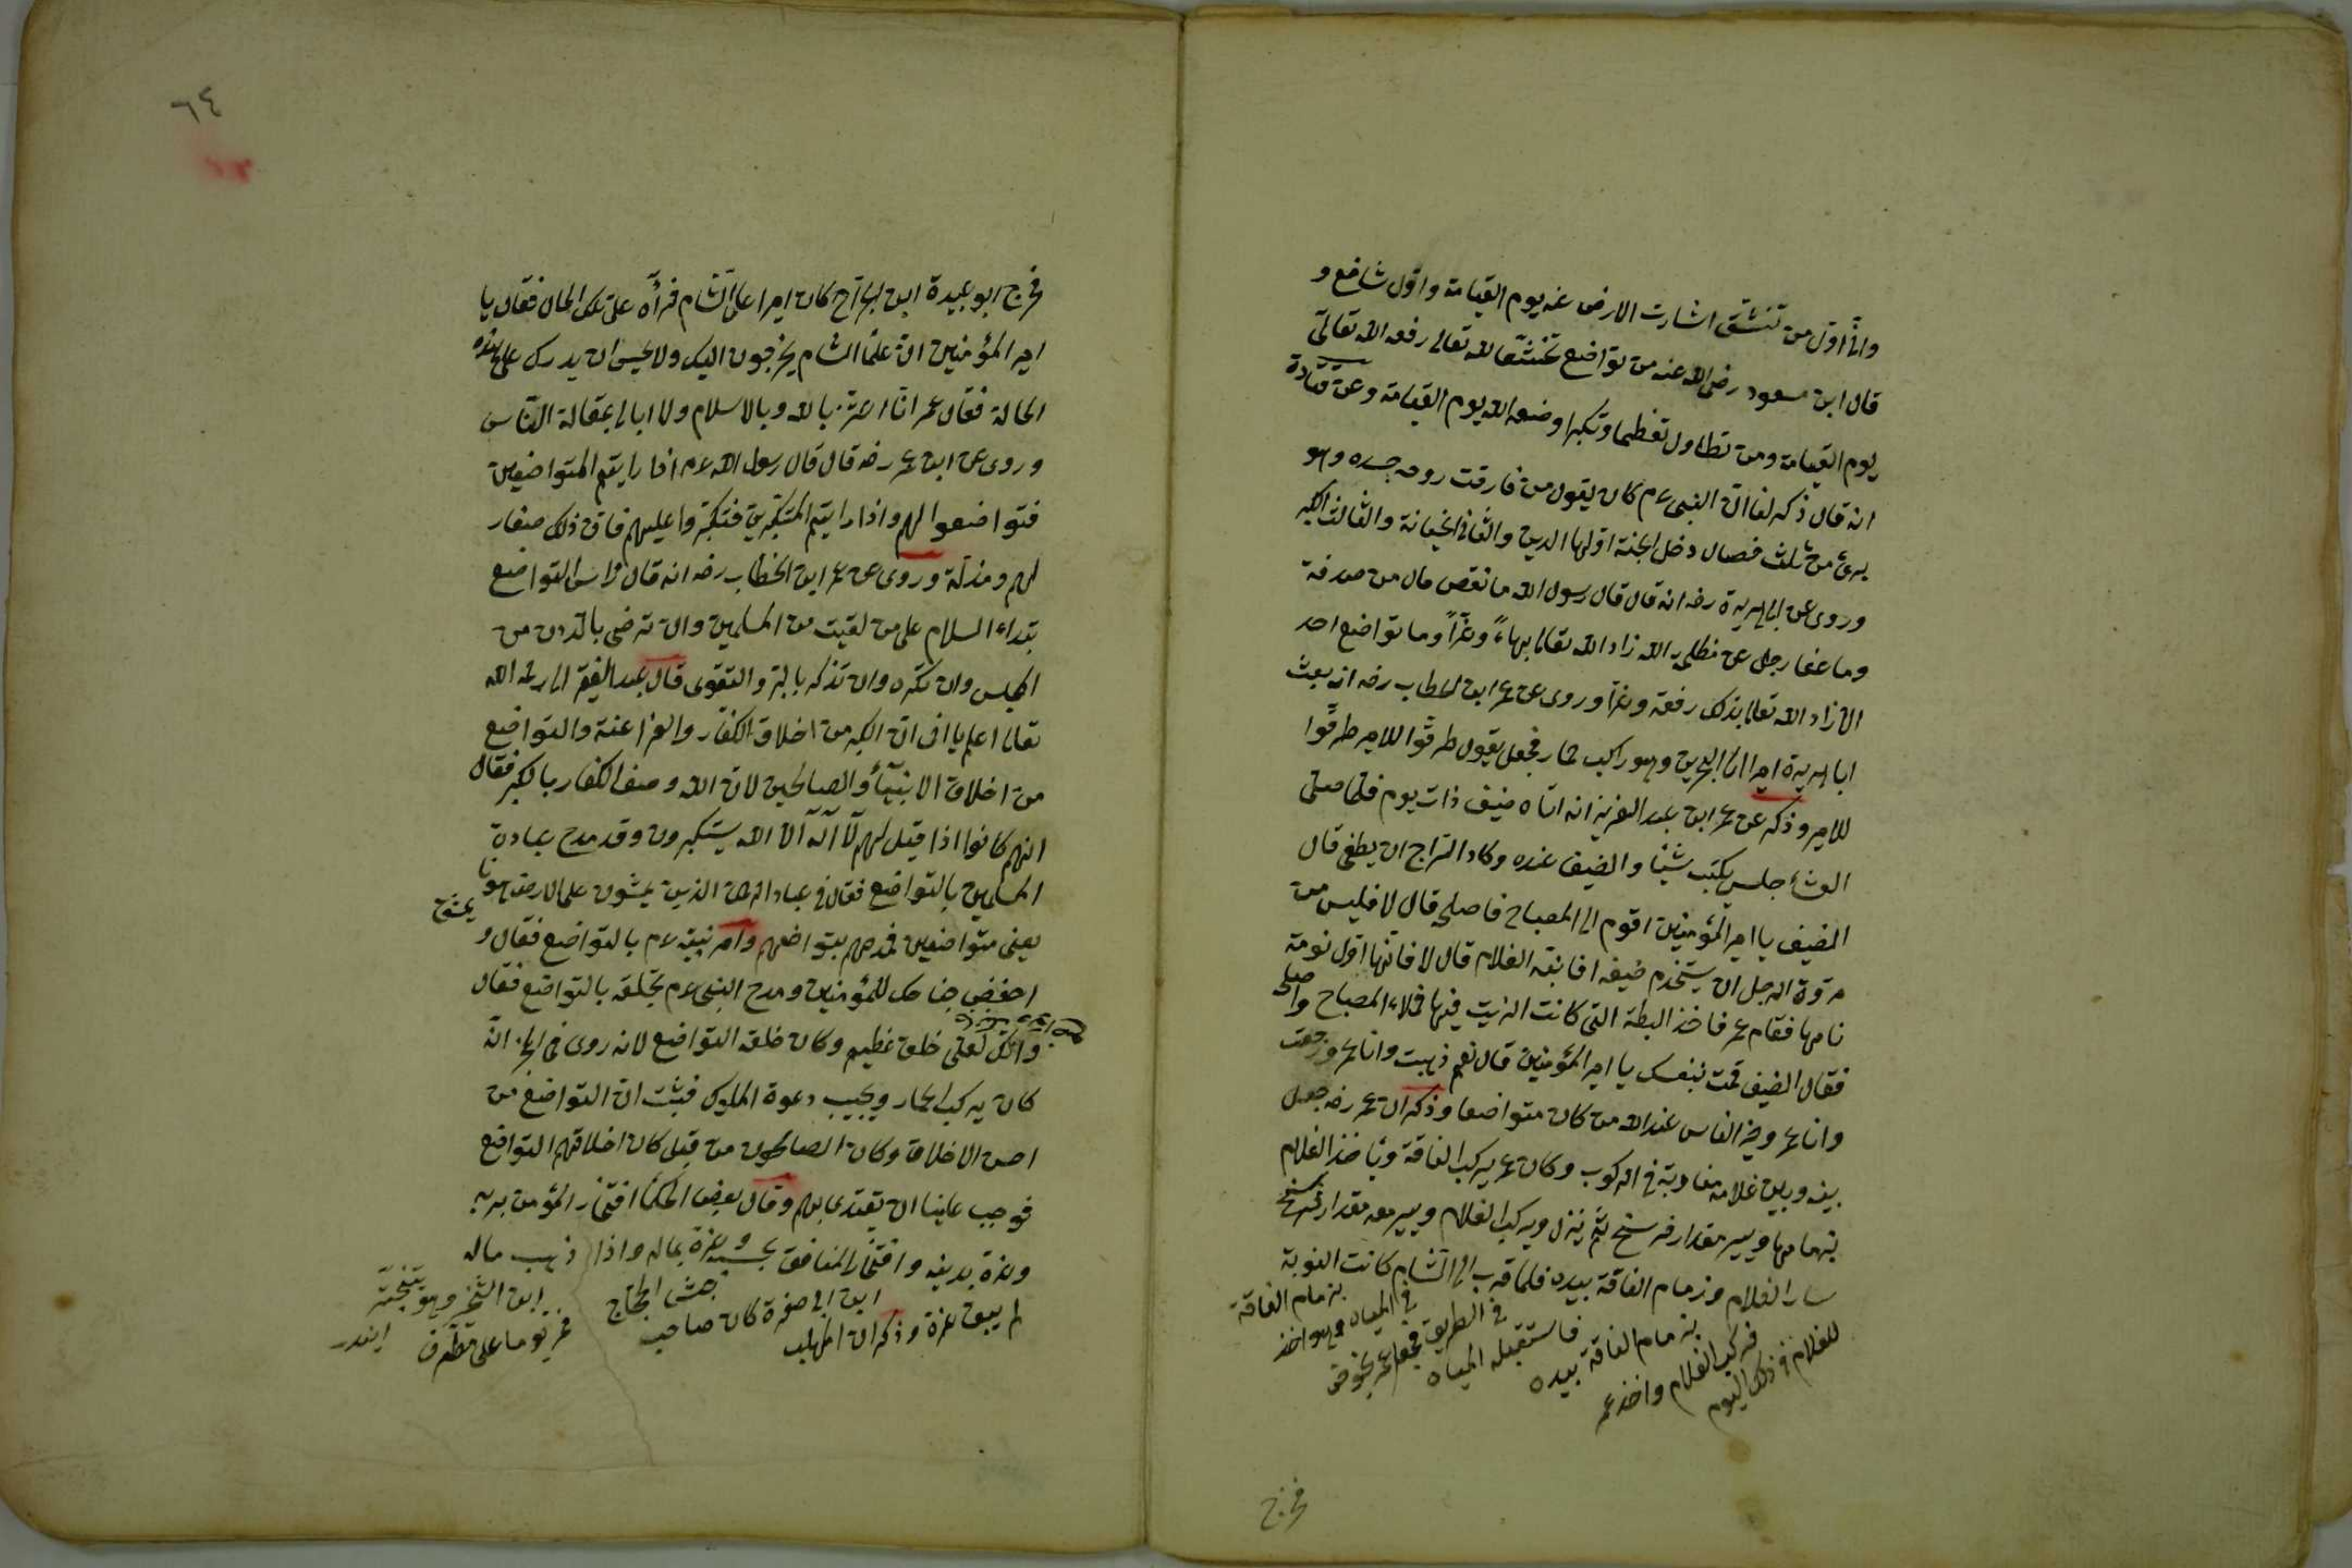 وانّا اوّل من تنشق اشارت الارض عنه يوم القيامة واوّل شافع و
قال ابن مسعود رضى الله عنه من تواضع تخشّعا لله تعالى رفعه الله تعالى
يوم القيامة ومن تطاول تعظيما وتكبرا وضعه الله يوم القيامة وعن قتادة
انه قال ذكر لنا ان النبى عم كان يقول من فارقت روحه جسده وهو
برئ من ثلث خصال دخل الجنة اولها الدين والثانى الخيانة والثالث الكبر
وروى عن ابى هريرة رضه انه قال قال رسول الله ما نقص مال من صدقة
وما عفا رجل عن مظلمة الله زاد الله تعالى بهاء وعزّاً وما تواضع احد
الا زاد الله تعالى بذلك رفعة وعزا وروى عن عمر ابن الخطاب رضه انه بعث
ابا هريرة اميرا الى البحرين وهو راكب حمار فجعل يقول طرقوا للامير طرقوا
للامير وذكر عن عمر ابن عبد العزيز انه اتاه ضيف ذات يوم فلما صلى
العشاء جلس يكتب شيئا والضيف عنده وكاد السّراج ان يطفى قال
الضيف يا امير المؤمنين اقوم الى المصباح فاصلح قال لا فليس من
مروة الرجل ان يستخدم ضيفه افا نبّه الغلام قال لا فانها اول نومة
نامها فقام عمر فاخذ البطة التى كانت الزيت فيها فملاء المصباح واصلح
فقال الضيف قمت بنفسك يا امير المؤمنين قال نعم ذهبت وانا عمر ورجعت
وانا عمر وخير الناس عند الله من كان متواضعا وذكر ان عمر رضه جعل
بينه وبين غلامه مناوبة فى الركوب وكان عمر يركب الناقة ويأخذ الغلام
بزمامها ويسير مقدار فرسخ ثم ينزل ويركب الغلام ويسير معه مقدار فرسخ
سار الغلام وزمام الناقة بيده فلما قرب الى الشام كانت النوبة
للغلام فى ذلك اليوم
فركب الغلام واخذ عمر
بزمام الناقة بيده
فاستقبله المياه
فى الطريق فجعل عمر يخوض
فى المياه وهو اخذ
بزمام الناقة
فخرج
٦٤
فخرج ابو عبيدة ابن الجراح كان اميرا على الشام فرآه على تلك الحال فقال يا
امير المؤمنين ان علماء الشام يخرجون اليك ولا يحسن ان يدرك على هذه
الحالة فقال عمر انا اعزّ بالله وبالاسلام ولا ابالى بمقالة الناس
وروى عن ابن عمر رضه قال قال رسول الله عم اذا رايتم المتواضعين
فتواضعوا لهم واذا رايتم المتكبرين فتكبروا عليهم فان ذلك صغار
لهم ومذلّة وروى عن عمر ابن الخطاب رضه انه قال رأس التواضع
تبداء السلام على من لقيت من المسلمين وان ترضى بالدون من
المجلس وان تكره وان تذكر بالبر والتقوى قال عبد الفقير الى رحمة الله
تعالى اعلم يا اخى ان الكبر من اخلاق الكفار والفراعنة والتواضع
من اخلاق الانبياء والصالحين لان الله وصف الكفار بالكبر فقال
انهم كانوا اذا قيل لهم لا اله الا الله يستكبرون وقد مدح عباده
المسلمين بالتواضع فقال فى عباد الرحمن الذين يمشون على الارض هونا
يعنى متواضعين فمدحهم بتواضعهم وامر نبيه عم بالتواضع فقال و
احفض جناحك للمؤمنين ومدح النبى عم بخلقه بالتواضع فقال
وانّك لعلى خلق عظيم وكان خلقه التواضع لانه روى فى الخبر انه
كان يركب الحمار ويجيب دعوة المملوك فثبت ان التواضع من
احسن الاخلاق وكان الصالحون من قبل كان اخلاقهم التواضع
فوجب علينا ان يقتدى بهم وقال بعض الحكماء افتخار المؤمن بربه
وعزة بدينه وافتخار المنافق بحسبه وعزة بماله واذا ذهب ماله
لم يبق عزة وذكر ان المهلب
ابن ابى صفرة كان صاحب
جيش الحجاج
فمر يوما على مطرف
ابن الشخير وهو يتبختر